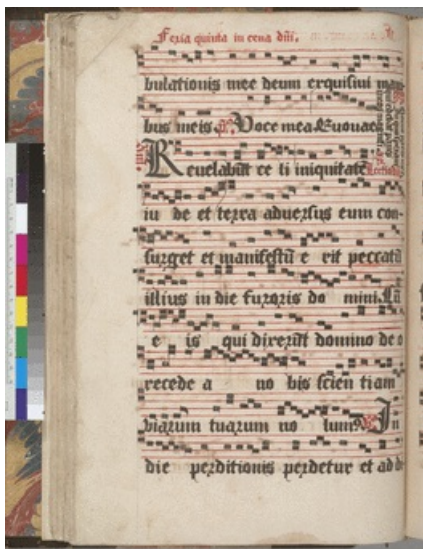 Feria quinta in cena dñi.
bulationis mee deum exquisiui ma
bus meis. Voce mea Euouae
Reuelabūt ce li iniquitatē
iu de et terra aduersus eum con-
surget et manifestū e rit peccatū
illius in die furoris do mini. Cū
e is qui dixerūt domino deo
recede a no bis scien tiam
viarum tuarum no lum9 In
die perditionis perdetur et ad de